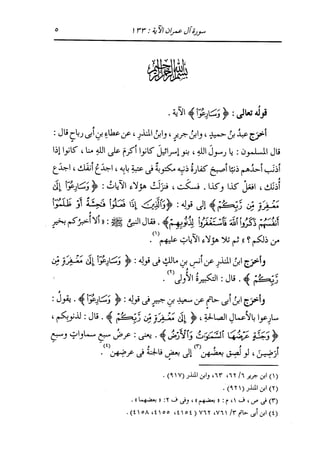 سورة آل عمران الآية : ١٣٣
٥
بسم الله الرحمن الرحيم
قولُه تعالى : ﴿ وَسَارِعُوٓا۟ ﴾ الآية .
أخرج عبدُ بنُ حميدٍ ، وابنُ جريرٍ ، وابنُ المنذرِ ، عن عطاءِ بنِ أبى رباحٍ قال :
قال المسلمون : يا رسولَ اللهِ ، بنو إسرائيلَ كانوا أكرمَ على اللهِ منا ، كانوا إذا
أذنَب أحدُهم ذنبًا أصبَح كفارةُ ذنبِه مكتوبةً فى عتبةِ بابِه ، اجدَعْ أنفَك ، اجدَعْ
أذنَك ، افعَلْ كذا وكذا . فسكَت ، فنزَلت هؤلاء الآياتُ : ﴿ وَسَارِعُوٓا۟ إِلَىٰ
مَغْفِرَةٍ مِّن رَّبِّكُمْ ﴾ إلى قولِه : ﴿ وَٱلَّذِينَ إِذَا فَعَلُوا۟ فَٰحِشَةً أَوْ ظَلَمُوٓا۟
أَنفُسَهُمْ ذَكَرُوا۟ ٱللَّهَ فَٱسْتَغْفَرُوا۟ لِذُنُوبِهِمْ ﴾ . فقال النبىُّ ﷺ : « ألا أُخبرُكم بخيرٍ
من ذلكم ؟ » ثم تلا هؤلاء الآياتِ عليهم (١) .
وأخرج ابنُ المنذرِ عن أنسِ بنِ مالكٍ فى قولِه : ﴿ وَسَارِعُوٓا۟ إِلَىٰ مَغْفِرَةٍ مِّن
رَّبِّكُمْ ﴾ . قال : التكبيرةُ الأولى (٢) .
وأخرج ابنُ أبى حاتمٍ عن سعيدِ بنِ جبيرٍ فى قولِه : ﴿ وَسَارِعُوٓا۟ ﴾ . يقولُ :
سارِعوا بالأعمالِ الصالحةِ ، ﴿ إِلَىٰ مَغْفِرَةٍ مِّن رَّبِّكُمْ ﴾ . قال : لذنوبِكم ،
﴿ وَجَنَّةٍ عَرْضُهَا ٱلسَّمَٰوَٰتُ وَٱلْأَرْضُ ﴾ . يعنى : عرضُ سبعِ سماواتٍ وسبعِ
أرَضينَ ، لو لُصِق بعضُهن (٣) إلى بعضٍ فالجنةُ فى عرضِهن (٤) .
(١) ابن جرير ٦/ ٦٢، ٦٣، وابن المنذر (٩١٧) .
(٢) ابن المنذر (٩٢١) .
(٣) فى ص ، ف ١، م : « بعضهم » ، وفى ف ٢: « بعضهما » .
(٤) ابن أبى حاتم ٣/ ٧٦١، ٧٦٢ (٤١٥٤، ٤١٥٥، ٤١٥٨) .